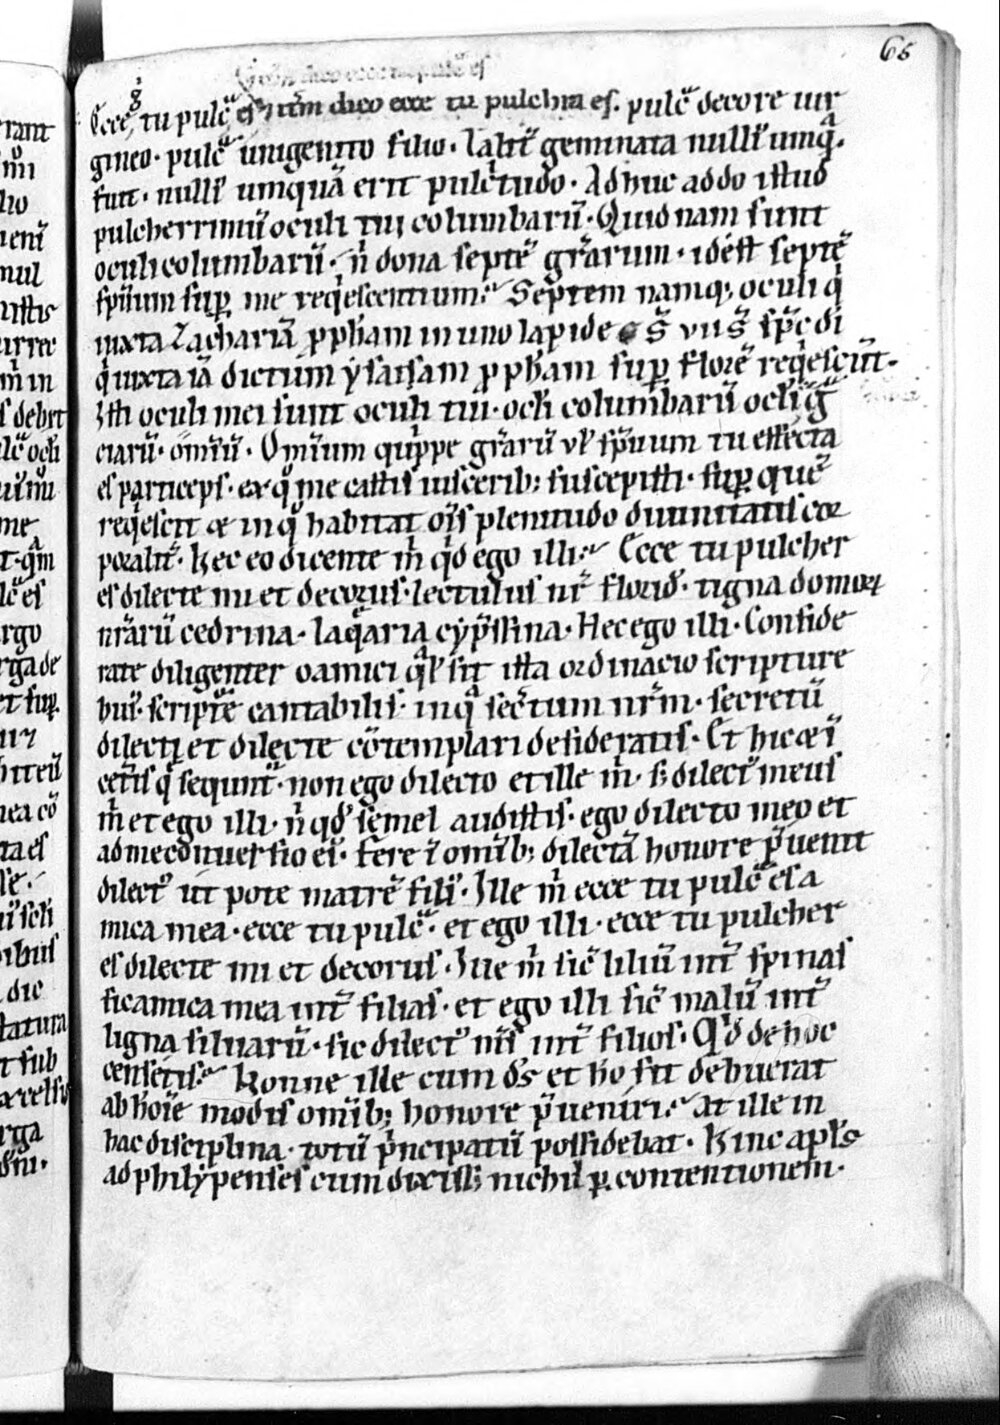 65
Ecce tu pulc̄ es ⁊ itm̄ dico ecce tu pulchra es. pulc̄ decore uir
gineo. pulc̄ unigenito filio. Talit̄ geminata null̄ umq̄.
fuit. null̄ umquā erit pulc̄tudo. Adhuc addo istud
pulcherrimū oculi tui columbarū. Quid nam sunt
oculi columbarū. n̄ dona septē gr̄arum. id ē septē
sp̄uum sup̱ me req̄escentium. Septem namq; oculi q̄
iuxta Zachariā ꝓph̄am in uno lapide s̄ vii s̄ sp̄c di
q̄ iuxta iā dictum ẏsaẏam ꝓph̄am sup̱ florē req̄escūt.
Isti oculi mei sunt oculi tui. ocl̄i columbarū ocl̄i gr̄a
ciarū. om̄iū. Omīum quippe gr̄arū ul̄ sp̄uum tu effecta
es particeps. ex q̊ me castis uiscerib; suscepisti. sup̱ quē
req̄escit æ in q̊ habitat om̄s plenitudo diuinitatis cor
poralit̄. Hec eo dicente m̄ qd̄ ego illi. Ecce tu pulcher
es dilecte mi et decorus. lectulus nr̄ florid᷒. tigna domorꝝ
nr̄arū cedrina. laq̄aria cẏp̄ssina. Hec ego illi. Conside
rate diligenter o amici q̄l̄ sit ista ordinacio scripture
hui᷒. scriptūre cantabilis. in q̄ secr̄tum nr̄m. secretū
dilecti et dilecte cōtemplari desideratis. Et hic æ ī
cet̄is q̄ sequnt̄. non ego dilecto et ille m̄. s; dilect᷒ meus
m̄ et ego illi. n̄ qd̄ semel audistis. ego dilecto meo et
ad me conuersio ei᷒. fere ī omīb; dilectā honore p̄uenit
dilect᷒ ut pote matrē fili᷒. Ille m̄ ecce tu pulc̄ es a
mica mea. ecce tu pulc̄. et ego illi. ecce tu pulcher
es dilecte mi et decorus. Ille m̄ sic̄ liliū int̄ spinas
sic amica mea int̄ filias. et ego illi sic̄ malū int̄
ligna siluarū. sic dilect᷒ m̄s int̄ filios. Qd̄ de hoc
censetis. Nonne ille cum ds̄ et hō sit debuerat
ab hōīe modis omīb; honore p̄ueniri. At ille in
hac disciplina. totū p̄ncipatū possidebat. Hinc apl̄s
ad philẏpenses cum dixiss; nichil p̱ contentionem.